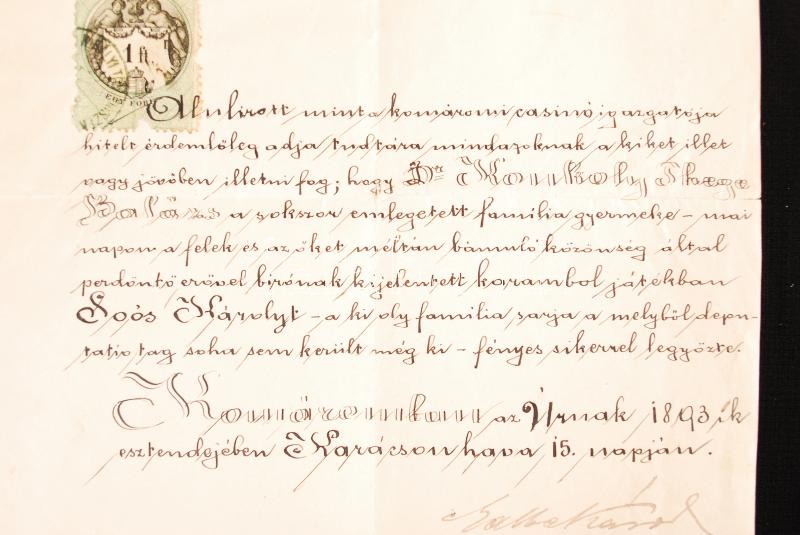 1 ft.
EGY FORI
Alulirott mint a komáromi casinó igazgatója
hitelt érdemlőleg adja tudtára mindazoknak a kiket illet
vagy jövőben illetni fog; hogy Dr Konkoly Thege
Balázs a sokszor emlegetett familia gyermeke – mai
napon a felek es az őket méltán bámuló közönség által
perdöntő erővel birónak kijelentett karambol játékban
Soós Károlyt – a ki oly familia sarja a melyből depu-
tatio tag soha sem került még ki – fényes sikerrel legyőzte.
Komáromban az Úrnak 1893 ik
esztendejében Karácson hava 15. napján.